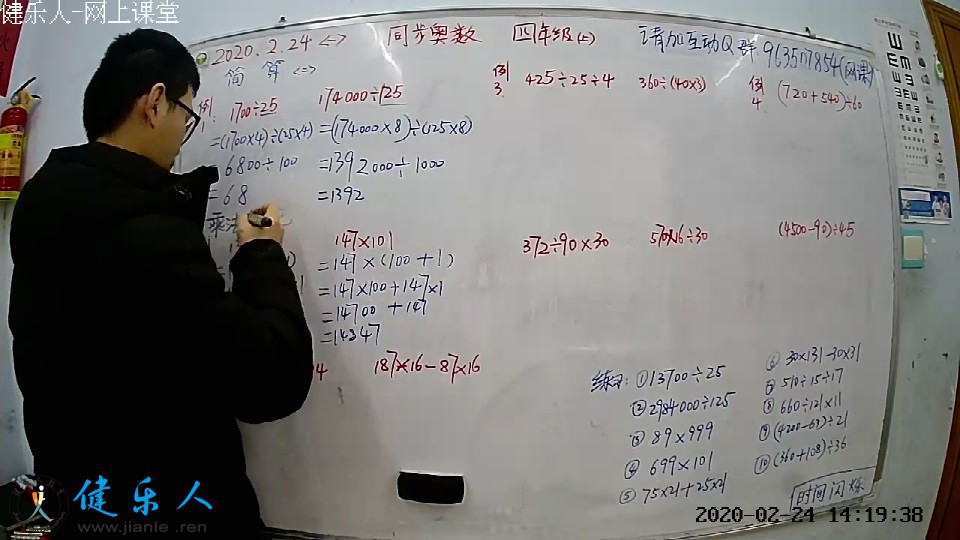 健乐人-网上课堂
2020.2.24 <-> 同步奥数 四年级(上) 请加互动Q群:963577854(网课)
简算<二>
例1 1700÷25 174000÷125
=(1700×4)÷(25×4) =(174000×8)÷(125×8)
=6800÷100 =1392000÷1000
=68 =1392
乘法
147×101
=147×(100+1)
=147×100+147×1
=14700+147
=14347
187×16-87×16
例3 425÷25÷4 360÷(40×3) 例4 (720+540)÷60
372÷90×30 570×16÷30 (4500-90)÷45
练习: ①13700÷25
②2984000÷125
③89×999
④699×101
⑤75×21+25×21
⑥30×131-30×31
⑦510÷15÷17
⑧660÷121×11
⑨(4200-63)÷21
⑩(360+108)÷36
时间闪烁
健乐人
www.jianle.ren
2020-02-24 14:19:38